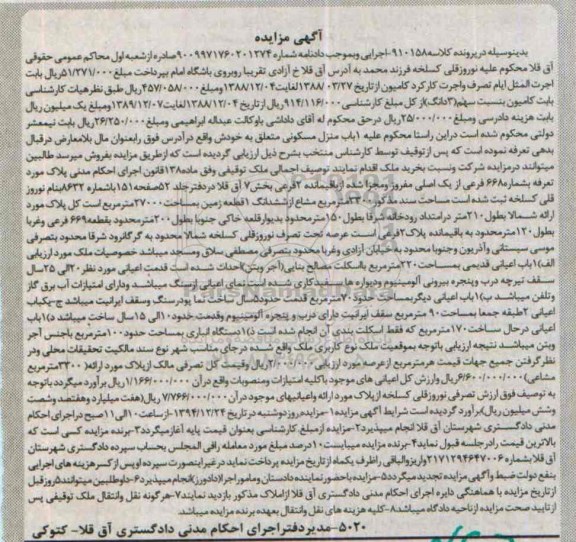 آگهی مزایده
بدینوسیله در پرونده کلاسه ۹۱۰۱۵۸-اجرایی وبموجب دادنامه شماره ۹۰۰۹۹۷۱۷۶۰۲۰۱۲۷۴صادره از شعبه اول محاکم عمومی حقوقی
آق قلا محکوم علیه نوروزقلی کسلخه فرزند محمد به آدرس آق قلا خ آزادی تقریبا روبروی باشگاه امام بپرداخت مبلغ ۵۱/۲۷۱/۰۰۰ریال بابت
اجرت المثل ایام تصرف واجرت کارکرد کامیون از تاریخ ۱۳۸۸/۰۳/۲۷لغایت ۱۳۸۸/۱۲/۰۴ومبلغ ۴۵۷/۰۵۸/۰۰۰ریال طبق نظرهیات کارشناسی
بابت کامیون بنسبت سهم(۳دانگ)از کل مبلغ کارشناسی ۹۱۴/۱۱۶/۰۰۰ریال از تاریخ ۱۳۸۸/۱۲/۰۴لغایت ۱۳۸۹/۱۲/۰۷ومبلغ یک میلیون ریال
بابت هزینه دادرسی ومبلغ ۲۵/۰۰۰/۰۰۰ریال درحق محکوم له آقای داداشی باوکالت عبداله ابراهیمی ومبلغ ۲۶/۲۵۰/۰۰۰ریال بابت نیمعشر
دولتی محکوم شده است دراین راستا محکوم علیه ۱باب منزل مسکونی متعلق به خودش واقع در آدرس فوق رابعنوان مال بلامعارض درقبال
بدهی تعرفه نموده است که پس از توقیف توسط کارشناس منتخب بشرح ذیل ارزیابی گردیده است که ازطریق مزایده بفروش میرسد طالبین
میتوانند درمزایده شرکت ونسبت بخرید ملک اقدام نمایند توصیف اجمالی ملک توقیفی وفق ماده۱۳۸قانون اجرای احکام مدنی پلاک مورد
تعرفه بشماره ۶۶۸فرعی از یک اصلی مفروز ومجزا شده از باقیمانده ۲فرعی بخش۷ آق قلا دردفترجلد ۵۲صفحه ۱۵۱باشماره ۸۶۳۲بنام نوروز
قلی کسلخه ثبت شده است مساحت سند مذکور ۳۳۰۰مترمربع مشاع از ششدانگ ۱قطعه زمین بمساحت ۲۷۰۰۰مترمربع است کل پلاک مورد
ارائه شمالا بطول ۲۱۰متر در امتداد رودخانه شرقا بطول ۱۵۰مترمحدود به دیوارقلعه خاکی جنوبا بطول ۲۰۰مترمحدود بقطعه۶۶۹ فرعی وغربا
بطول ۱۲۰مترمحدود به باقیمانده پلاک۲فرعی است عرصه تحت تصرف نوروزقلی کسلخه شمالا محدود به گرگانرود شرقا محدود بتصرفی
موسی سیستانی وآذریون وجنوبا محدود به خیابان آزادی وغربا محدود بتصرفی مصطفی سلاق ومسجد میباشد خصوصیات ملک مورد ارزیابی
الف)۱باب اعیانی قدیمی بمساحت۲۲۰مترمربع بااسکلت مصالح بنایی(آجر وبتن)احداث شده است قدمت اعیانی مورد نظر۲۰الی ۲۵سال
سقف تیرچه درب وپنجره بیرونی آلومینیوم ودیواره های سفیدکاری شده است نمای اعیانی ازسنگ میباشد ودارای امتیازات آب برق گاز
وتلفن میباشد ب)۱باب اعیانی دیگربمساحت حدود۷۰مترمربع قدمت حدود۵سال ساخت بنا پودرسنگ وسقف ایرانیت میباشد ج-یکباب
اعیانی ۲طبقه جمعا بمساحت ۹۰ مترمربع سقف ایرانیت دارای درب و پنجره آلومینیوم وقدمت حدود ۱۰الی ۱۵سال ساخت میباشد د)۱باب
اعیانی درحال ساخت ۱۷۰مترمربع که فقط اسکلت بندی آن انجام شده است ذ)۱دستگاه انباری بمساحت حدود۱۰۰مترمربع باجنس آجر
وبتن میباشد نتیجه ارزیابی باتوجه بموقعیت ملک نوع کاربری ملک واقع شده درجای مناسب شهر نوع سند مالکیت تحقیقات محلی ودر
نظرگرفتن جمیع جهات قیمت هرمترمربع ازعرصه مورد ارزیابی ۲/۰۰۰/۰۰۰ریال وقیمت کل تصرفی مالک ازپلاک مورد ارائه( ۳۳۰۰مترمربع
مشاعی)۶/۶۰۰/۰۰۰/۰۰۰ریال وارزش کل اعیانی های موجود باکلیه امتیازات ومنصوبات واقع درآن ۱/۱۶۶/۰۰۰/۰۰۰ریال برآورد میگردد باتوجه
به توصیف فوق ارزش تصرفی نوروزقلی کسلخه ازپلاک مورد ارائه واعیانیهای موجود درآن ۷/۷۶۶/۰۰۰/۰۰۰ریال(هفت میلیارد وهفتصد وشصت
وشش میلیون ریال)برآورد گردیده است شرایط آگهی مزایده۱-مزایده روزدوشنبه درتاریخ ۱۳۹۴/۱۲/۲۴-ازساعت۱۰الی۱۱صبح دراجرای احکام
مدنی دادگستری شهرستان آق قلا انجام میپذیرد۲-مزایده ازمبلغ کارشناسی بعنوان قیمت پایه آغازمیگردد۳-برنده مزایده کسی است که
بالاترین قیمت رادرجلسه قبول نماید۴-برنده مزایده میبایست۱۰درصد مبلغ مورد معامله رافی المجلس بحساب سپرده دادگستری شهرستان
آق قلابشماره ۲۱۷۱۲۹۴۶۴۷۰۰۶واریزوالباقی راظرف یکماه از تاریخ مزایده پرداخت نماید درغیراینصورت سپرده اوپس از کسرهزینه های اجرایی
بنفع دولت ضبط وآگهی مزایده تجدید میگردد۵-مزایده باحضورنماینده دادستان ومامور اجرا(دادورز)انجام میپذیرد۶-داوطلبین میتوانند۵روزقبل
از تاریخ مزایده با هماهنگی دایره اجرای احکام مدنی دادگستری آق قلا ازاملاک مذکور بازدید نمایند۷-هرگونه نقل وانتقال ملک توقیفی پس
از تایید صحت مزایده ازناحیه دادگاه میباشد۸-کلیه هزینه های نقل وانتقال بعهده برنده مزایده میباشد.
۵۰۲۰-مدیردفتراجرای احکام مدنی دادگستری آق قلا- کتوکی